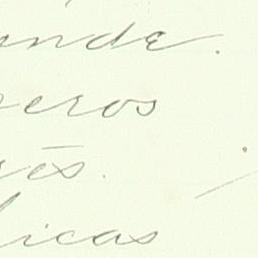 unde.
eros
és.
licas